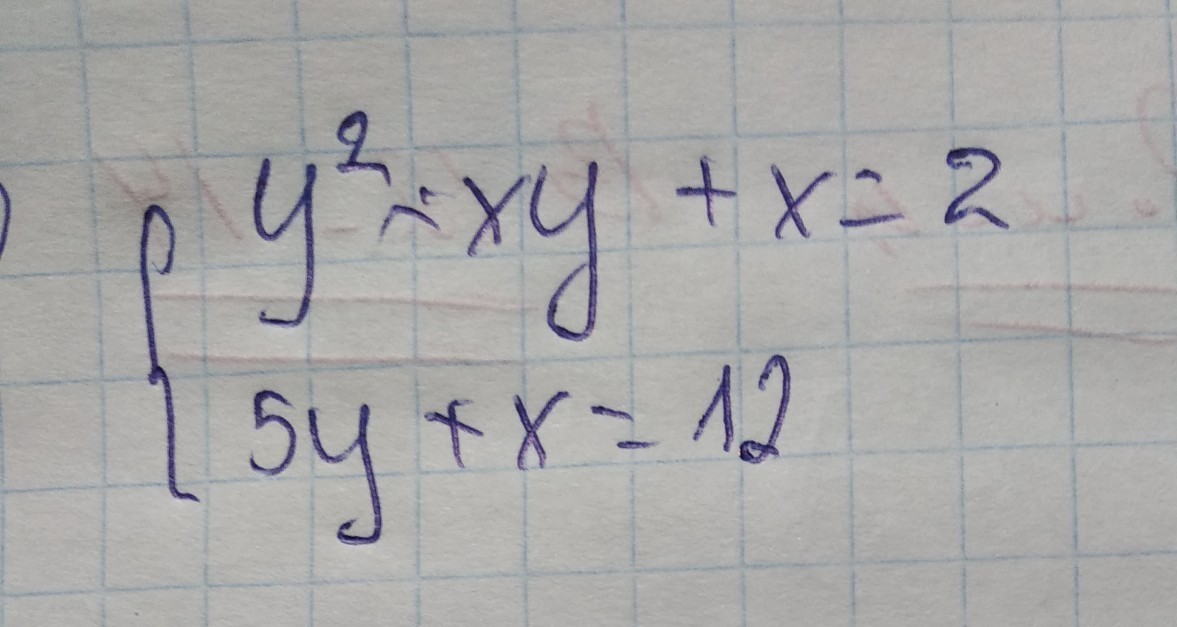 y² - xy + x = 2
5y + x = 12